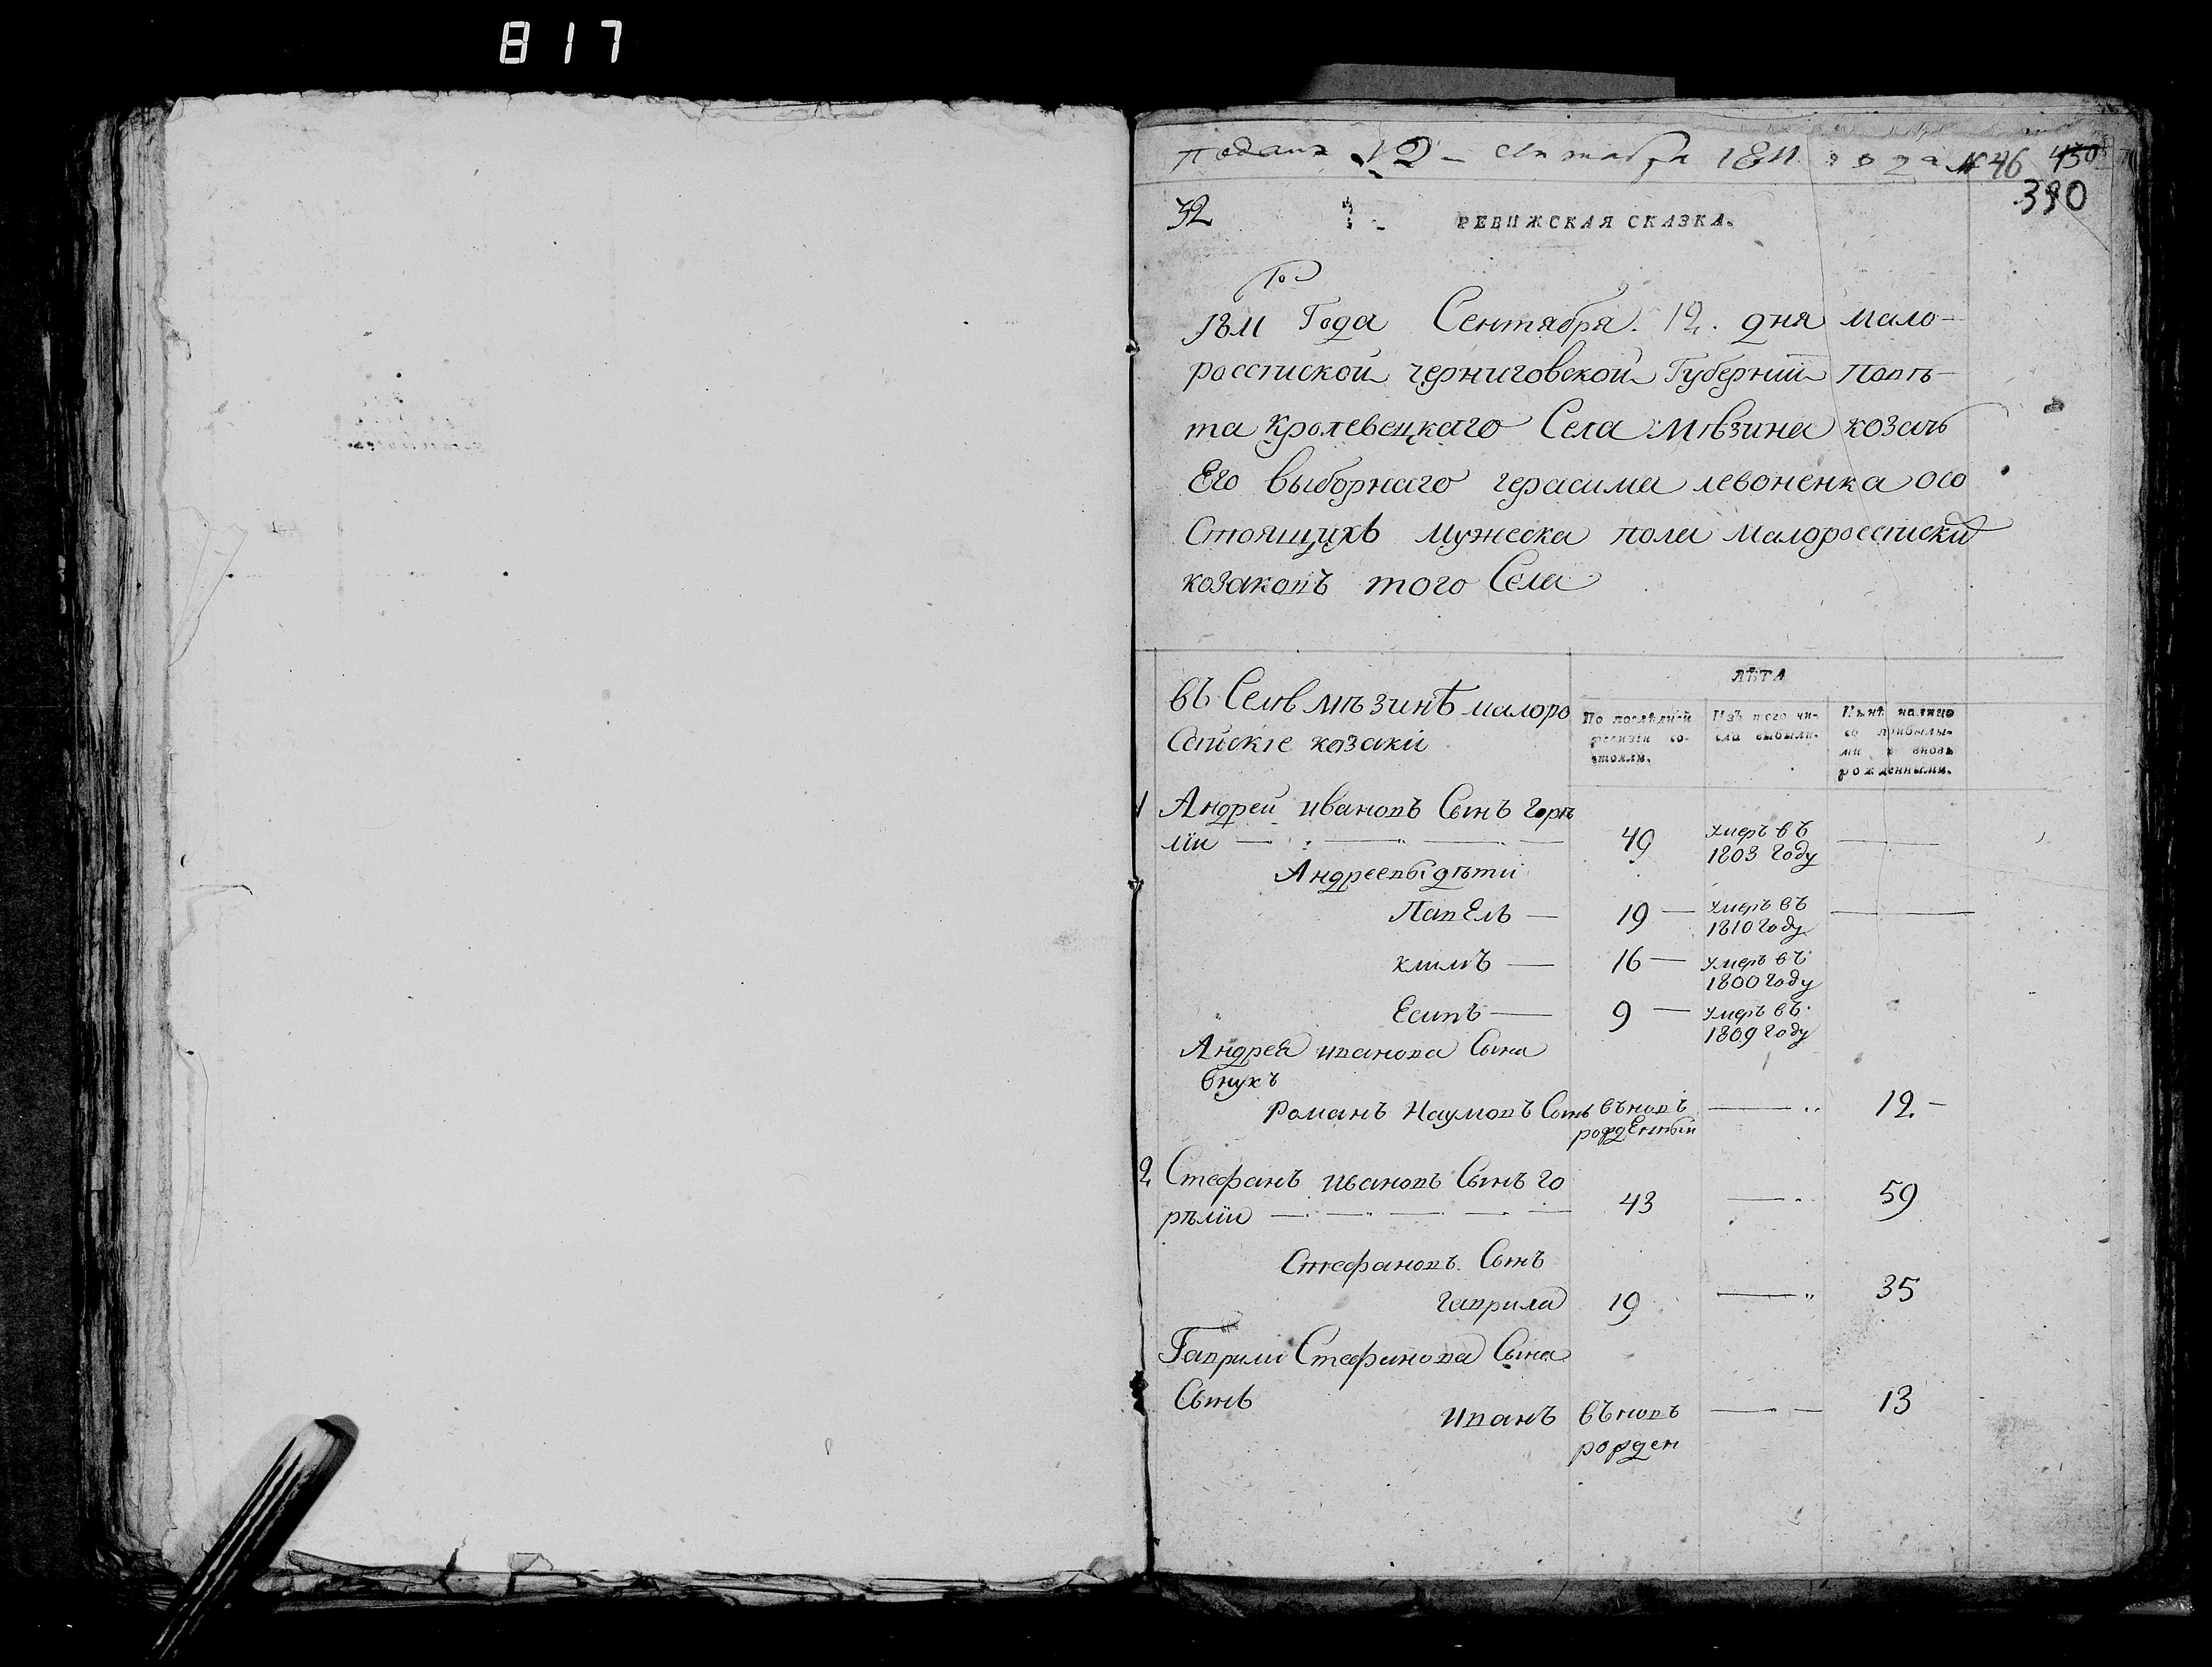 817
подана 12 сентября 1811 года № 46 450
390
32
РЕВИЖСКАЯ СКАЗКА.
1811 Года Сентября 12. дня мало-
россійской черниговской Губерніи Повѣ-
та кролевецкаго Села Мѣзина козачь
Его выборнаго герасима левоненка осо
Стоящихъ мужеска пола малороссійски
козаковъ того Села
ЛѢТА
въ Селѣ мѣзинѣ малоро
Ссійскіе козаки
По послѣдней ревизіи состояли.
Изъ того числа выбыли.
Нынѣ налицо со прибылыми и вновь рожденными.
1 Андрей ивановъ Сынъ горѣ
лій 49 умеръ въ 1803 году
Андреевы дѣти
Павелъ — 19 — умеръ въ 1810 году
климъ — 16 — умеръ въ 1800 году
Есипъ — 9 — умеръ въ 1809 году
Андрея иванова Сына
внукъ
Романъ Наумовъ Сынъ въновъ рожденный 12.
2 Стефанъ ивановъ Сынъ го
рѣлій 43 59
Стефановъ Сынъ
гаврила 19 35
Гаврили Стефанова Сына
Сынъ
иванъ въновъ рожден 13